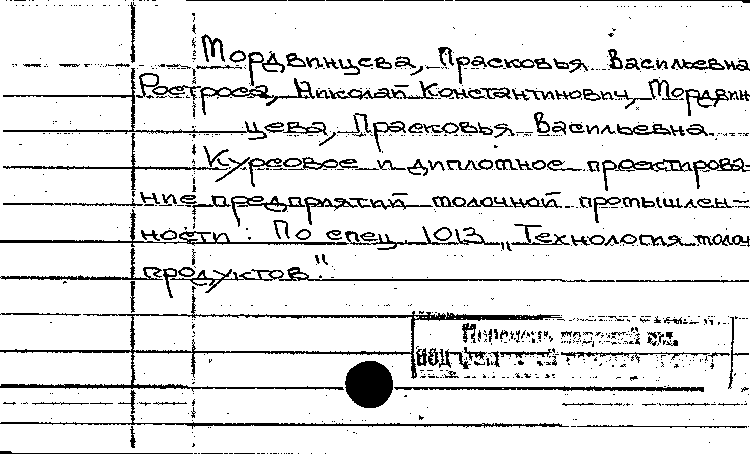 Мордвинцева, Прасковья Васильевна
Ростроса, Николай Константинович, Мордвин
цева, Прасковья Васильевна.
Курсовое и дипломное проектирова-
ние предприятий молочной промышлен-
ности: По спец. 1013 „Технология молоч
продуктов".
Перечень изданий см.
под фамилией первого